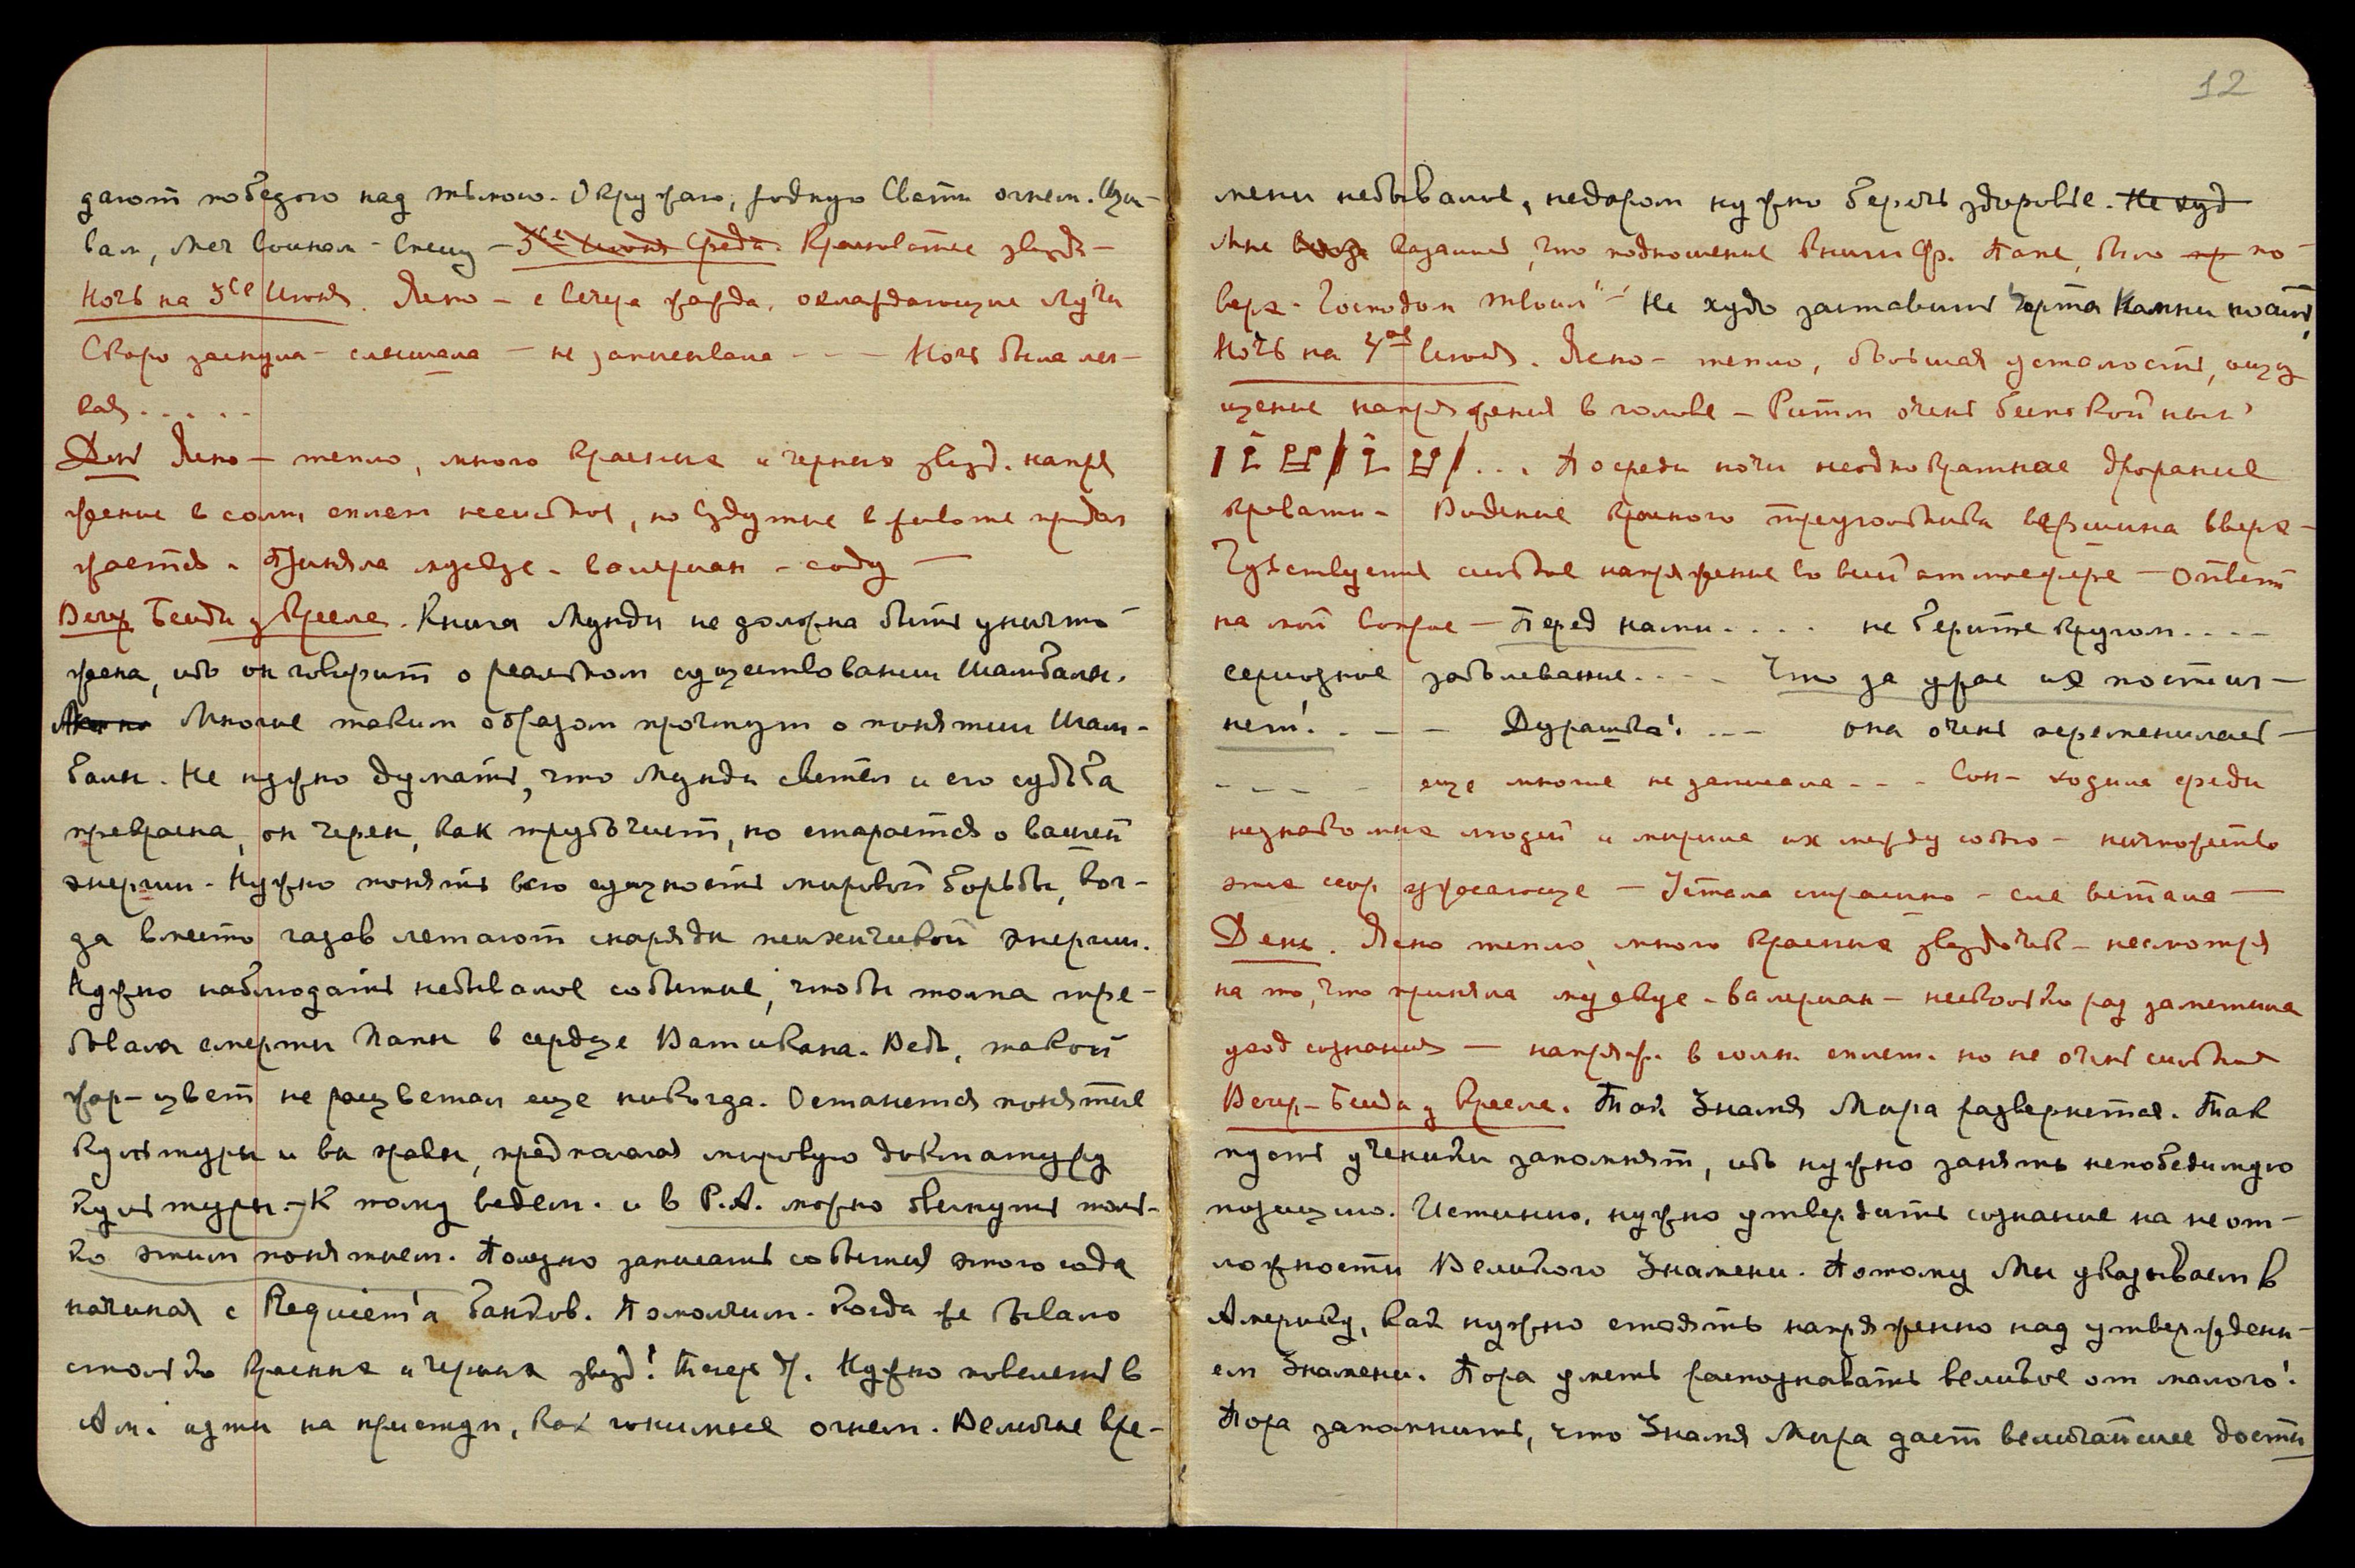 дают победою над тьмою. Окружаю, родную Свати огнем. Щи-
вам, меч Воинам - Спешу - 3ье Июня Среда. Красноватые звезды -
Ночь на 3ье Июня. Ясно - с вечера жажда, охлаждающие лучи
Скоро заснула - слышала - не записывала - - - Ночь была лег-
кая. . . . .
День Ясно - тепло, много красных и черных звезд. напря
жение в солн. сплет несильное, но вздутие в животе продол
жается. Приняла мускус - валериан - соду -
Вечер Беседы у кресле. Книга Мунди не должна быть уничто
жена, ибо он говорит о реальном существовании Шамбалы.
Многие таким образом прочтут о понятии Шам-
балы. Не нужно думать, что Мунди светел и его судьба
прекрасна, он черен, как трубочист, но старается о вашей
энергии. Нужно понять всю сущность мировой борьбы, ког-
да вместо газов летают снаряды психической энергии.
Нужно наблюдать небывалое событие, чтобы толпа тре-
бовала смерти Папы в сердце Ватикана. Ведь, такой
жар-цвет не расцветал еще никогда. Останется понятие
культуры и вы правы, предполагая мировую диктатуру
культуры. - К тому ведем. и в Р.А. можно двинуть толь-
ко этим понятием. Полезно записать события этого года
начиная с Requiem'a банков. Помолчим. Когда же бывало
столько красных и черных звезд! Теперь др. Нужно повелеть в
Ам. идти на приступ, как гонимые огнем. Великие вре-
12
мени небывалое, недаром нужно беречь здоровье. Не худ
Мне казалось, что подношение книги Фр. Папе, было по-
верх. Господом твоим" - Не худо заставить черта камни носить,
Ночь на 4ое Июня. Ясно - тепло, большая усталость, ощу
щение напряжения в голове - Ритм очень беспокойный
. . . Посреди ночи неоднократное дрожание
кровати - Видение красного треугольника вершина вверх -
Чувствуется сильное напряжение во всей атмосфере - Ответ
на мой вопрос - Перед нами. . . . не берите кругом. . . -
серьозное заболевание. . - - Что за ужас их постиг -
нет! . - - Дурашка! . - - она очень переменилась -
- - - - - еще многие не записала - - - Сон - ходила среди
незнакомых людей и мирила их между собою - ничтожество
этих ссор ужасающе - Устала страшно - еле встала -
День. Ясно тепло, много красных звездочек - несмотря
на то, что приняла мускус - валериан - несколько раз заметила
уход сознания - напряж. в солн. сплет. но не очень сильное
Вечер - Беседы у кресле. Так Знамя Мира развернется. Так
пусть ученики запомнят, ибо нужно занять непобедимую
позицию. Истинно, нужно утвердить сознание на неот-
ложности Великого Знамени. Потому Мы указываем в
Америку, как нужно стоять напряженно над утверждени-
ем Знамени. Пора уметь распознавать великое от малого!
Пора запомнить, что Знамя Мира дает величайшее дости